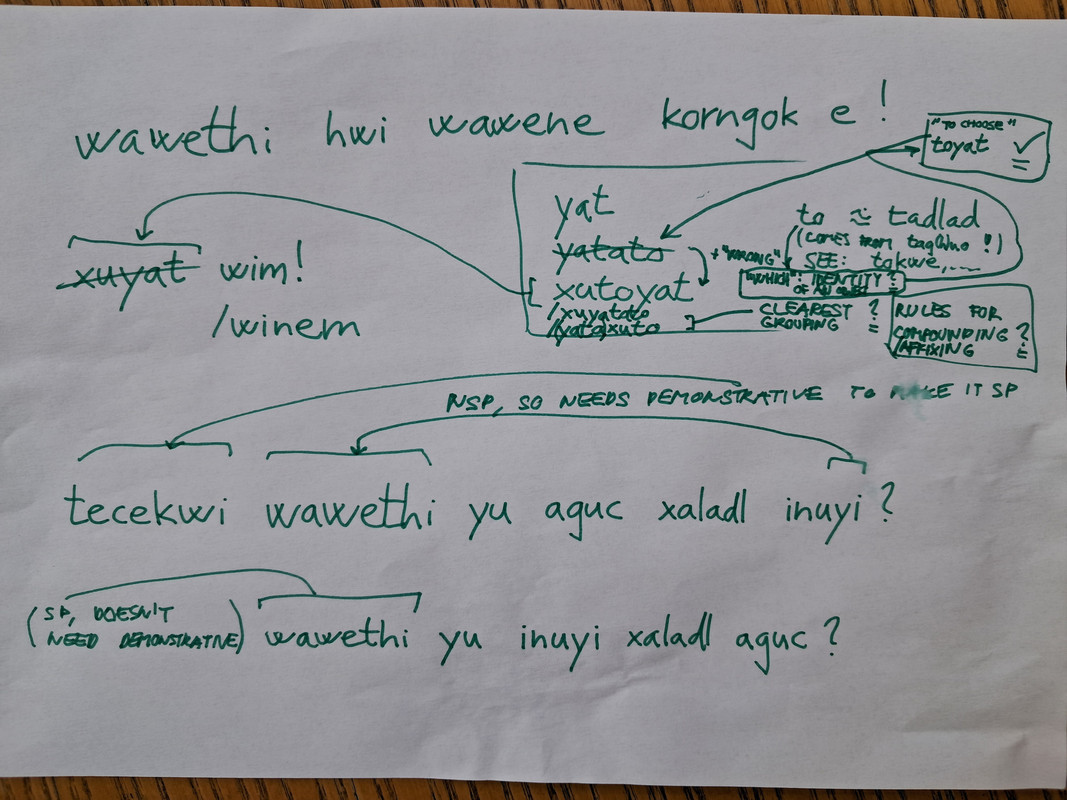 wawethi hwi wawene korngok e!
"TO CHOOSE"
toyat ✓
yat
yatato
xutoyat
/xuyatato
/yataxuto
+ "WRONG"
to ≈ tadlad
(COMES FROM !)
SEE: takwe,...
"WHICH": IDENTITY ?
OF AN OBJECT
CLEAREST ?
GROUPING
RULES FOR
COMPOUNDING ?
/AFFIXING
xuyat wim!
/winem
NSP, SO NEEDS DEMONSTRATIVE TO MAKE IT SP
tecekwi wawethi yu aguc xaladl inuyi?
(SP, DOESN'T
NEED DEMONSTRATIVE)
wawethi yu inuyi xaladl aguc?